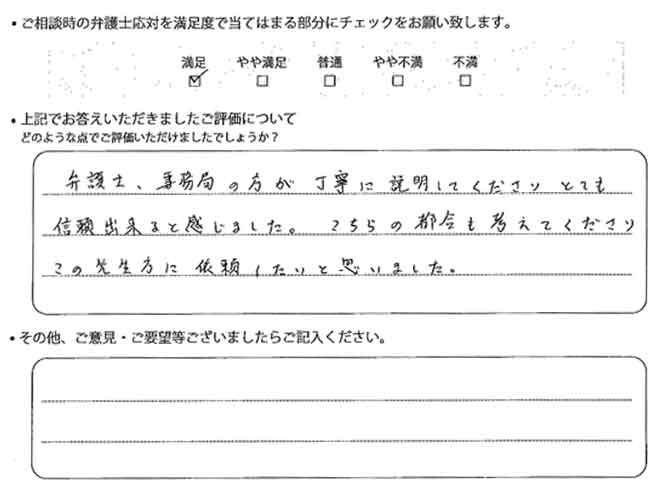 ・ご相談時の弁護士応対を満足度で当てはまる部分にチェックをお願い致します。
満足 やや満足 普通 やや不満 不満
☑ □ □ □ □
・上記でお答えいただきましたご評価について
どのような点でご評価いただけましたでしょうか？
弁護士、事務局の方が丁寧に説明してくださり とても
信頼出来ると感じました。 こちらの都合も考えてくださり
この先生方に依頼したいと思いました。
・その他、ご意見・ご要望等ございましたらご記入ください。